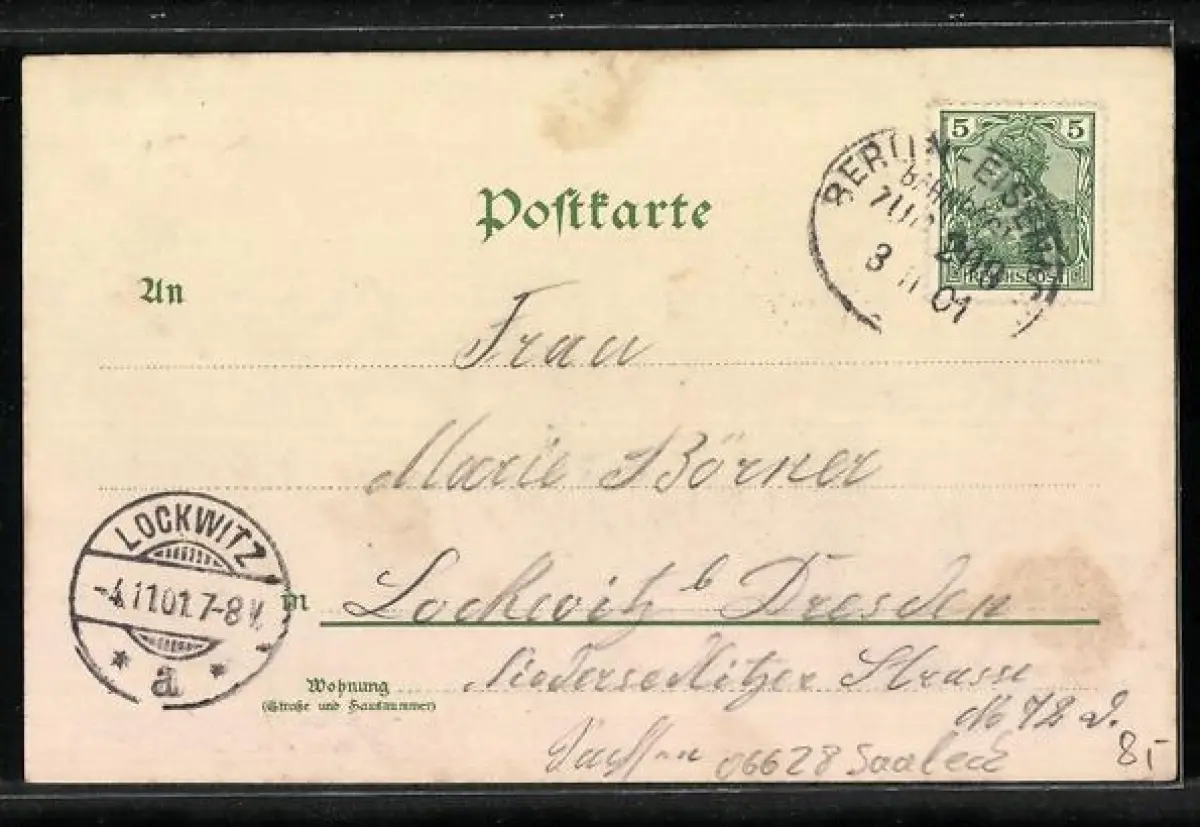 5 5
REICHSPOST
BERLIN-EISENA
BAHNPOST
ZUG
3 11 01
Postkarte
An
Frau
Marie Börner
LOCKWITZ
-4.11.01.7-8V.
* a *
in Lockwitz b Dresden
Wohnung Niedersedlitzer Strasse
(Straße und Hausnummer)
No 72 d.
Sachsen 06628 Saaleck
85,-